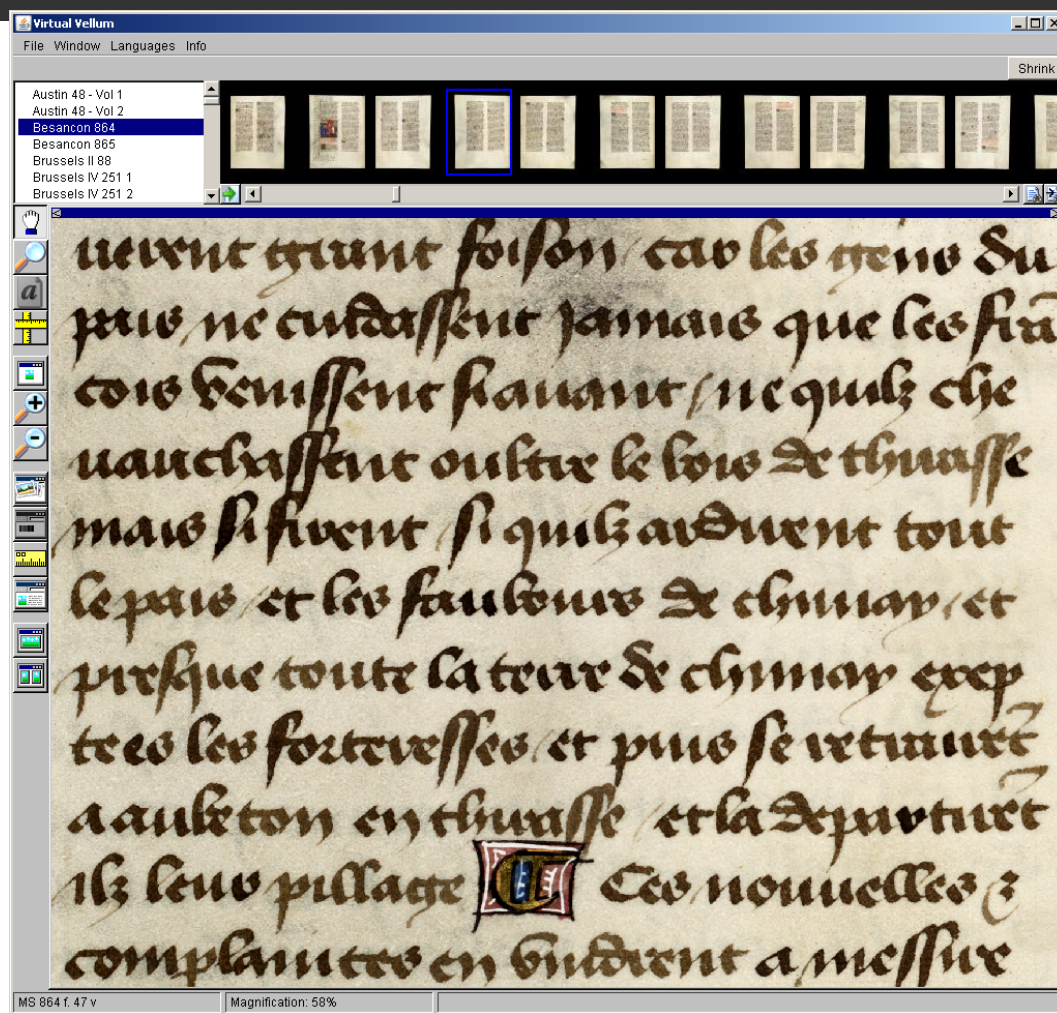 Virtual Vellum
File Window Languages Info
Shrink
Austin 48 - Vol 1
Austin 48 - Vol 2
Besancon 864
Besancon 865
Brussels II 88
Brussels IV 251 1
Brussels IV 251 2
a
uerent grant foison / car les gens du
pais ne cuidassent Jamais que les frã
cois venissent si auant / ne quilz che
uauchassent oultre le bois de thirasse
mais si firent / si quilz ardirent tout
le pais / et les faulbours de chimay / et
presque toute la terre de chimay excep
tees les forteresses / et puis se retrairẽt
a aubeton en thirasse / et la departirẽt
ilz leur pillage Ces nouuelles &
complaintes en vindrent a messire
MS 864 f. 47 v
Magnification: 58%